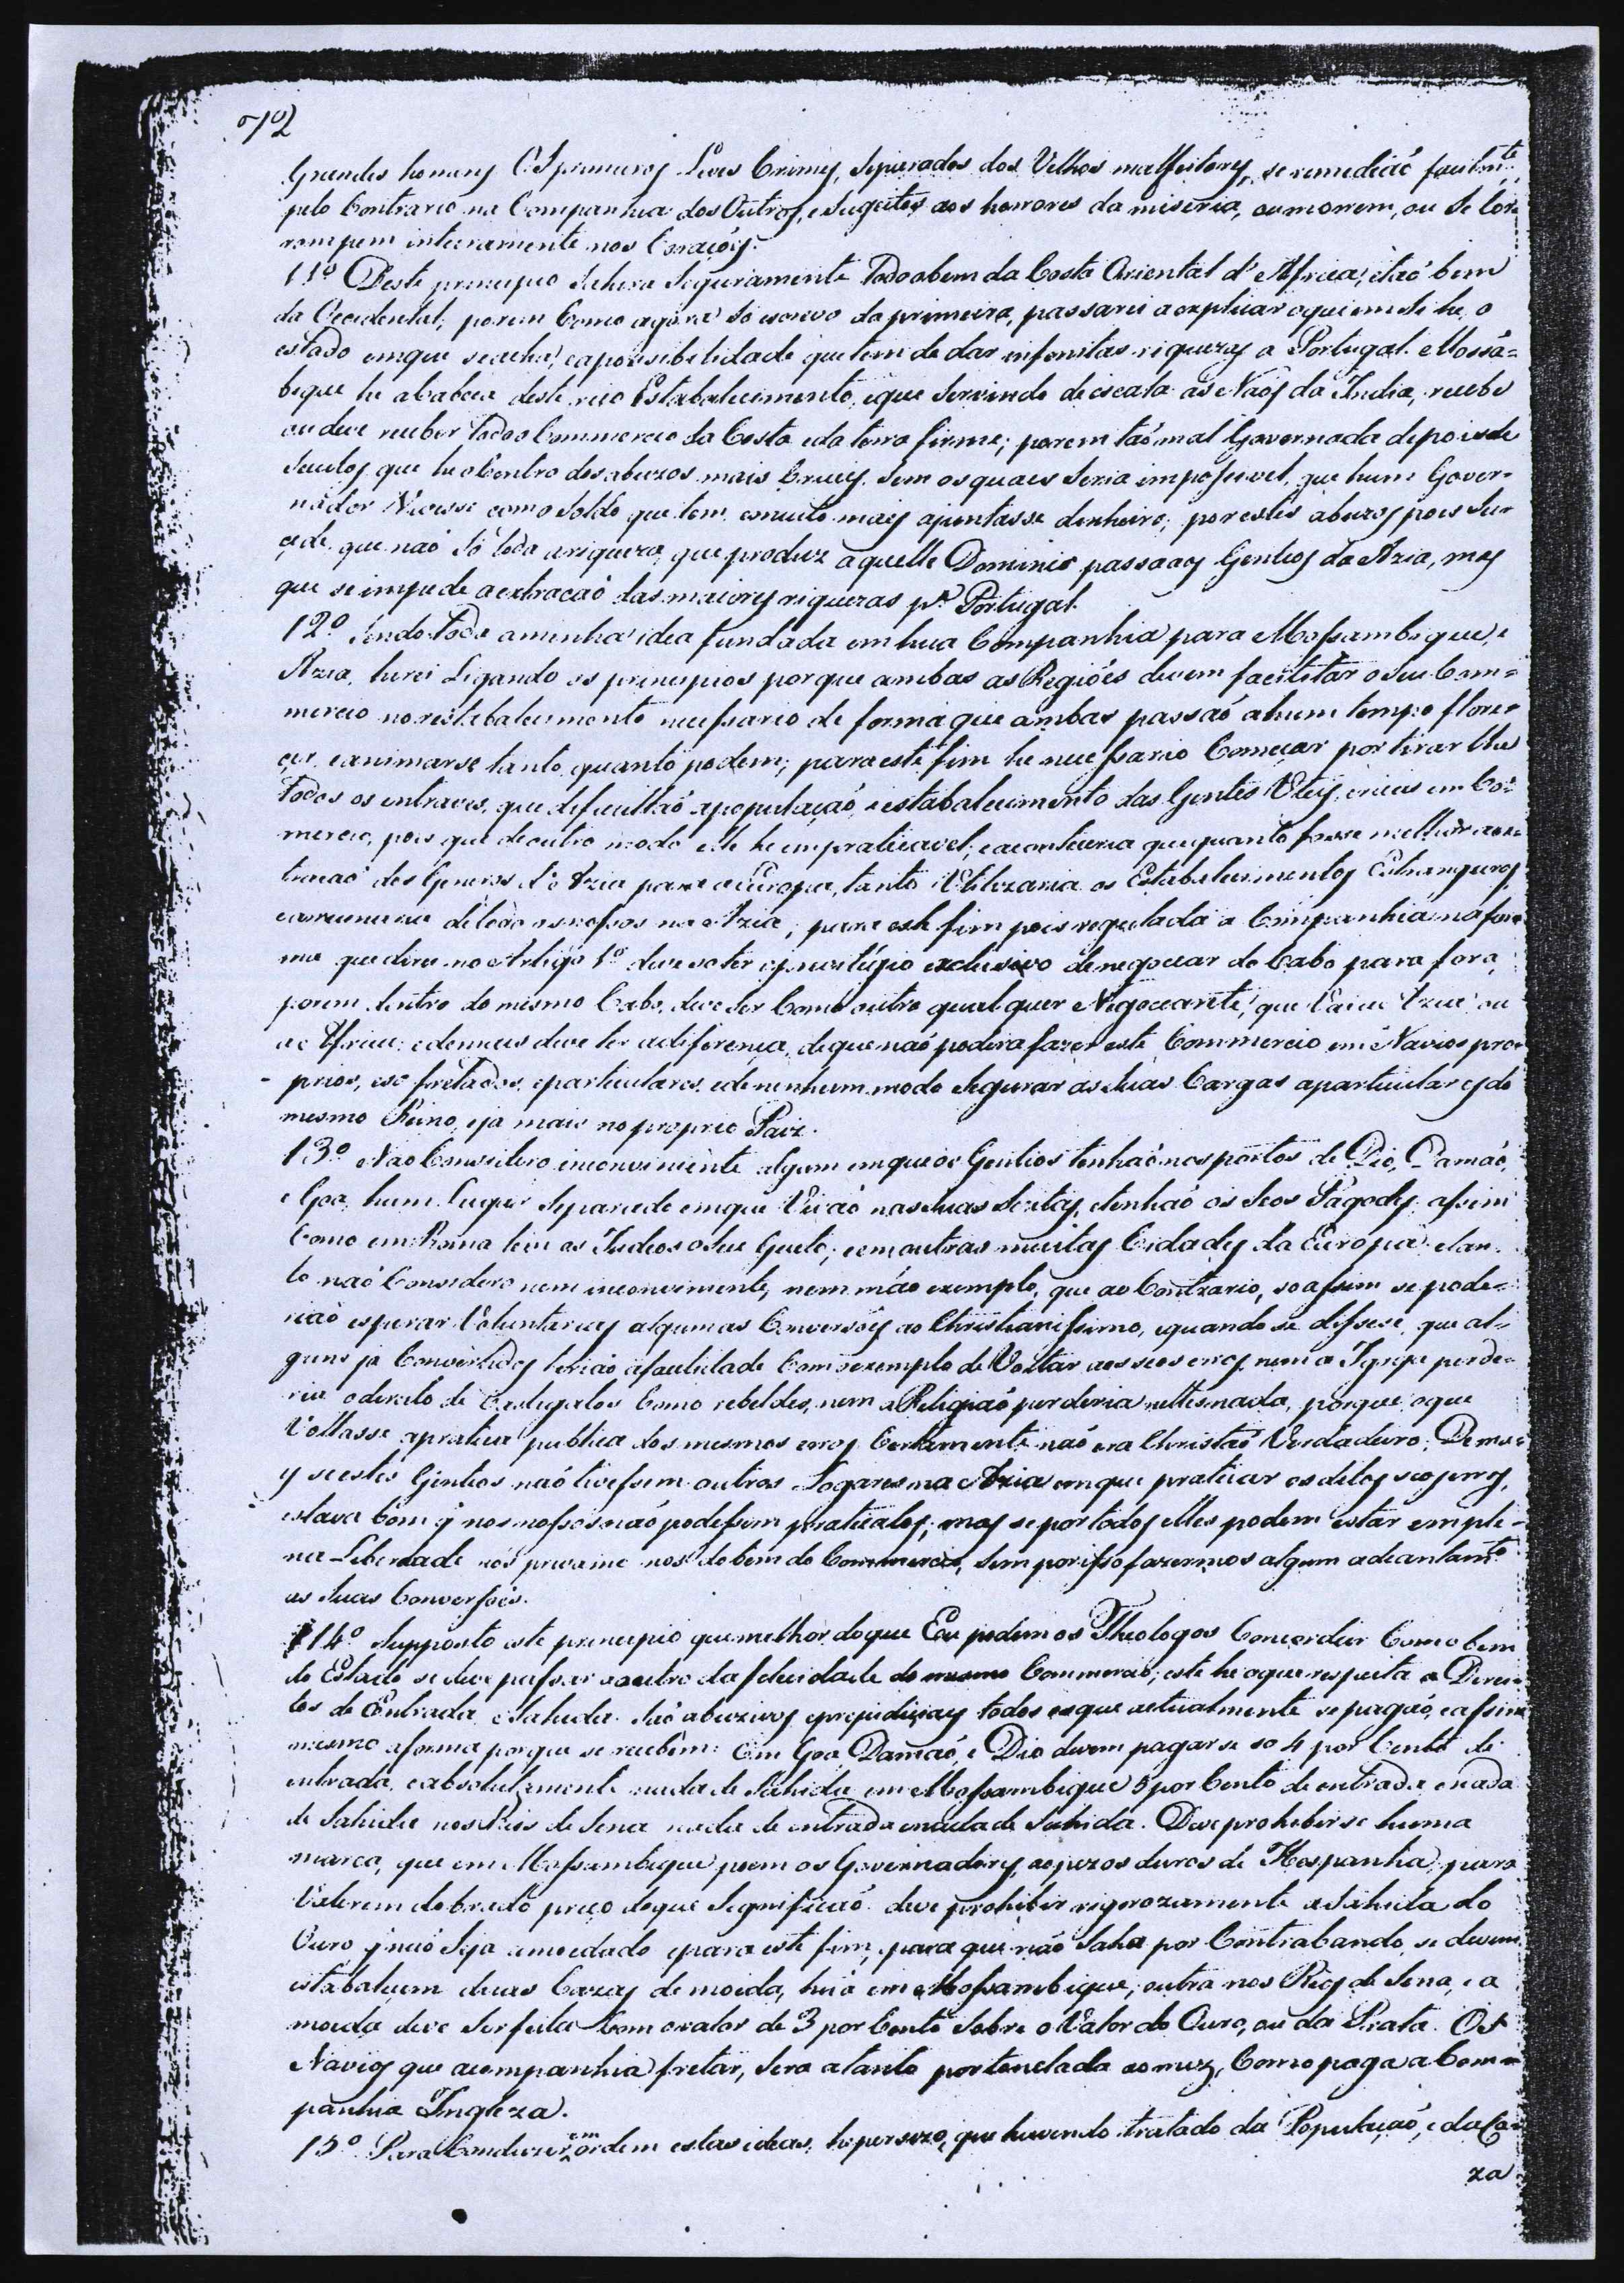 72
Grandes homens Os primeiros Leves Crimes, separados dos Velhos malfeitores, se remedeaõ facilm.te
pelo Contrario na Companhia dos Outros, e sugeitos aos horrores da miseria, ou morrem, ou se Cor=
rompem inteiramente nos Coraçoẽs.
11º Deste principio sahira seguramente todo o bem da Costa Oriental d'Africa, e taõ bem
da Occidental; porem Como agora só escrevo da primeira, passarei a explicar o que em si he, o
estado em que se acha, e a possibelidade que tem de dar infenitas riquezas a Portugal. Mossã=
bique he a Cabeça deste rico Estabalecimento, e que servindo de escala as Naós da India, recebe
ou deve receber todo o Commercio da Costa e da terra firme; porem taõ mal Governada depois de
Seculos que he o Centro dos abuzos mais Crueis, sem os quaes seria impossivel, que hum Gover=
nador Vivesse com o soldo que tem, e muito mais ajuntasse dinheiro; por estes abuzos pois su=
cede, que naõ só toda a riqueza, que produz aquelle Dominio passa aos Gentios da Azia, mas
que se impede a extracaõ das maiores riquezas p.a Portugal.
12º Sendo toda a minha idea fundada em hua Companhia para Mossambique, e
Azia, hirei Ligando os principios porque ambas as Regiões devem facilitar o seu Com=
mercio no restabalecimento necessario de forma que ambas possaõ a hum tempo flore=
cer, e animarse tanto, quanto podem; para este fim he necessario Começar por tirar lhe
todos os entraves, que deficultaõ a populaçaõ, e estabalecimento das Gentes Uteis, e ricas em Cõ=
mercio, pois que de outro modo elle he impraticavel; e aconteceria que quanto fosse melhor a ex=
tracaõ dos Generos d'Azia para a Europa, tanto Utilizaria os Estabalecimentos Estrangeiros
e arruinaria de todo os nossos na Azia; para este fim pois regulada a Companhia na for=
ma que direi no Artigo 1º deve só ter o previlégio exclusivo de negociar do Cabo para fora,
porem dentro do mesmo Cabo, deve ser Como outro qualquer Negociante, que Vai a Azia, ou
a Africa: e demais deve ter a diferença, de que naõ podera fazer este Commercio em Navios pro=
prios, e só fretados, e particulares, e de nenhum modo segurar as suas Cargas a particulares do
mesmo Reino, e ja mais no proprio Paiz.
13º Naõ Considero inconveniente algum em que os Gentios tenhaõ nos portos de Dio, Damaõ,
e Goa, hum Lugar separado em que Vivaõ nas suas Seitas, e tenhaõ os seos Págodes assim
Como em Roma tem os Judeos o seu Gueto, e em outras muitas Cidades da Europa: e tan=
to naõ Considero nem inconveniente, nem máo exemplo, que ao Contrario, só assim se pode=
riaõ esperar Voluntarias algumas Conversoẽs ao Christianissimo, e quando se dissese, que al=
guns ja Convertidos teriaõ a facilidade Com o exemplo de Voltar aos seos erros, nem a Igreja perde=
ria o direito de Castigalos Como rebeldes, nem a Religiaõ perderia nelles nada, porque o que
Voltasse a pratica publica dos mesmos erros Certamente naõ era Christaõ Verdadeiro. Dema=
is se estes Gentios naõ tivessem outros Logares na Azia em que praticar os ditos seos erros,
estava bom q nos nossos naõ podessem praticalos; mas se por todos elles podem estar em ple=
na Liberdade nos privamo nos do bem do Commercio, sem por isso fazermos algum adeantam.to
as suas Conversoẽs.
14º Supposto este principio que melhor do que Eu podem os Theologos Concordar Como bem
do Estado se deve passar a outro da felicidade do mesmo Commercio; este he o que respeita a Direi=
tos de Entrada e Sahida. Saõ abuzivos, e prejudiciais todos os que actualmente se pagaõ, e assim
mesmo a forma porque se recebem: Em Goa, Damaõ, e Dio devem pagarse só 4 por Cento de
entrada, e absolutamente nada de Sahida em Mossambique 5 por Cento de entrada e nada
de Sahida nos Rios de Sena nada de entrada e nada de Sahida. Deve prohibir se huma
marca, que em Mossambique poem os Governadores, aos pezos duros de Hespanha, para
Valerem dobrado preço do que significaõ: deve prohibir rigorozamente a Sahida do
Ouro q naõ seja amoedado, e para este fim, para que naõ saha por Contrabando, se devem
estabalecem duas Cazas de moeda, huã em Mossambique, outra nos Rios de Sena, e a
moeda deve ser feita Com o valor de 3 por Cento sobre o Valor do Ouro, ou da Prata. Os
Navios que a companhia fretar, sera a tanto por tonelada ao mez, Como paga a Com=
panhia Ingleza.
15º Para Conduzir em ordem estas ideas, he percizo, que havendo tratado da Populaçaõ, e da Ca=
za